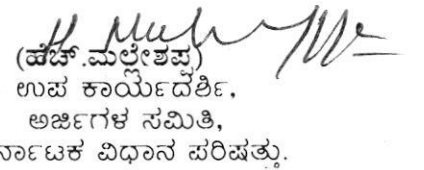 (ಹೆಚ್.ಮಲ್ಲೇಶಪ್ಪ)
ಉಪ ಕಾರ್ಯದರ್ಶಿ,
ಅರ್ಜಿಗಳ ಸಮಿತಿ,
ವಿಧಾನ ಪರಿಷತ್ತು.